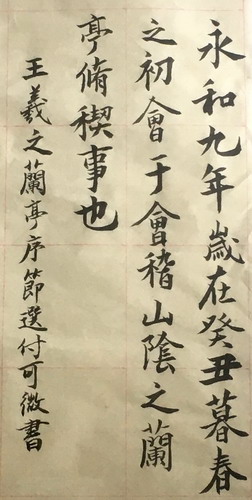 永和九年歲在癸丑暮春
之初會于會稽山陰之蘭
亭脩稧事也
王羲之蘭亭序節選付可微書